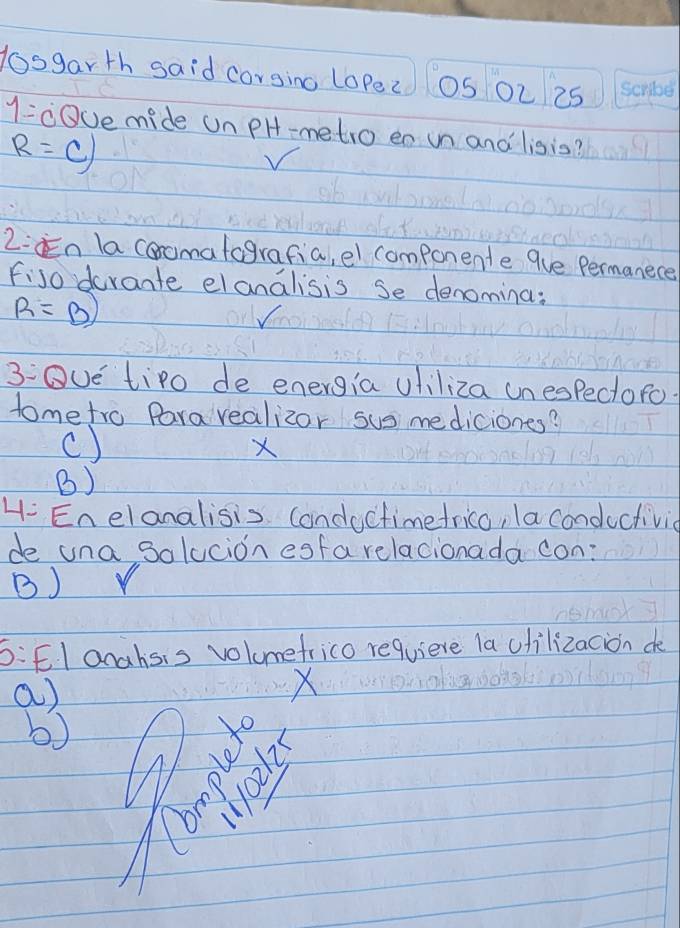 Yosgarth said corsino Lopez 05 02 25 Scribe
1=¿Que mide un PH-metro en un análisis?
R= C) ✓
2=En la coromatografia, el componente que Permanece
Fijo durante el análisis se denomina:
R= B) ✓
3=Qué tipo de energía utiliza un espectofo-
tometro Para realizar sus mediciones?
C) X
B)
4= En el analisis conductimetrico, la conductivid
de una solución esta relacionada con:
B) ✓
5=El analisis volumetrico requiere la utilización de
a) X
b)
Completo
11/02/25